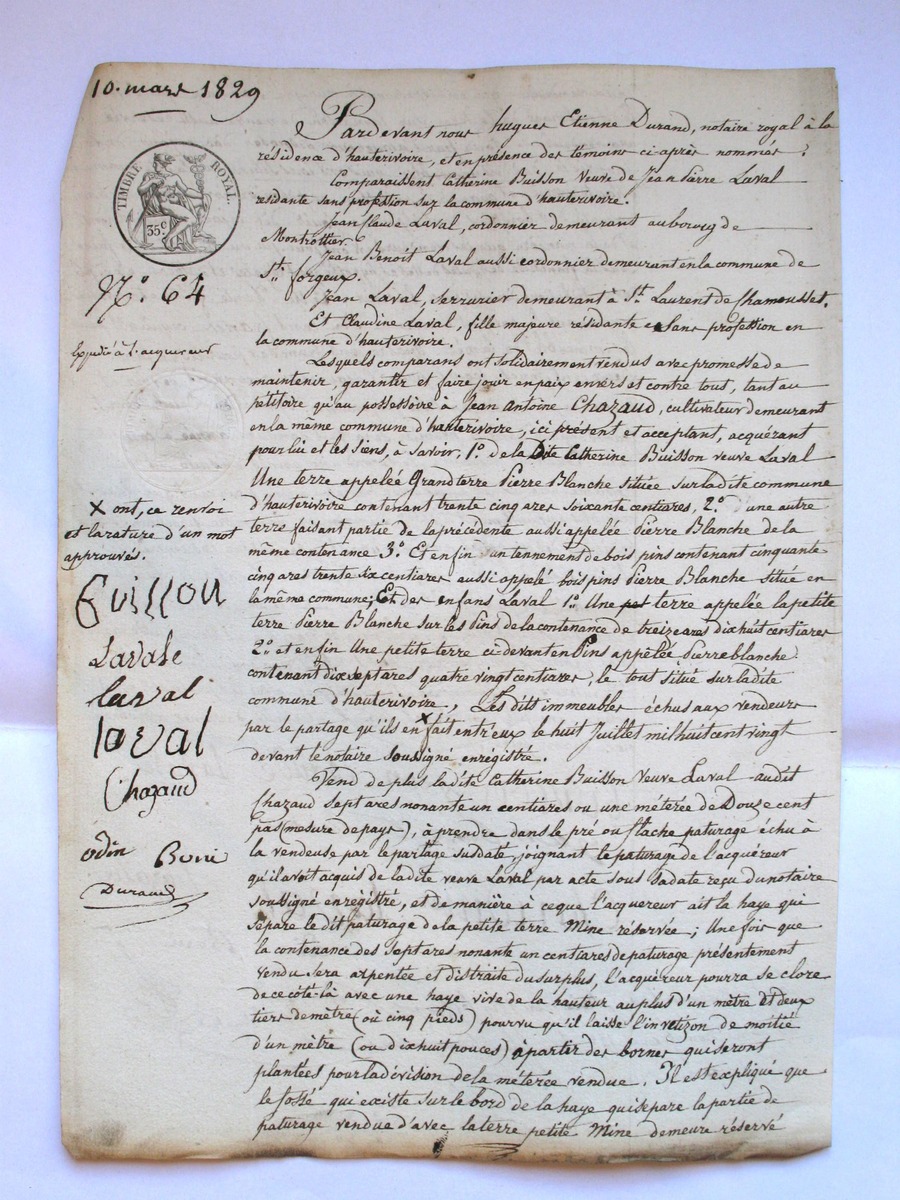 10. mars 1829
TIMBRE ROYAL.
35c
No. 64
Expedié à l'acquereur
X ont, ce renvoi
et la rature d'un mot
approuvés.
Lavale
laval
laval
Chazaud
odin
Durand
Pardevant nous hugues Etienne Durand, notaire royal à la
résidence d'hauterivoire, et en présence des témoins ci-après nommés;
Comparaissent Catherine Buisson veuve de Jean Pierre Laval
résidante sans profession sur la commune d'hauterivoire.
Jean Claude Laval, cordonnier demeurant au bourg de
Montrottier.
Jean Benoit Laval aussi cordonnier demeurant en la commune de
St. forgeux.
Jean Laval, serrurier demeurant à St. Laurent de Chamousset.
Et Claudine Laval, fille majeure résidante sans profession en
la commune d'hauterivoire.
Lesquels comparans ont solidairement vendus avec promesse de
maintenir, garantir et faire jouir en paix envers et contre tout, tant au
pétitoire qu'au possessoire à Jean Antoine Chazaud, cultivateur demeurant
en la même commune d'hauterivoire, ici présent et acceptant, acquérant
pour lui et les siens, à savoir, 1o. de la Dite Catherine Buisson veuve Laval
Une terre appelée Grand terre Pierre Blanche située sur la dite commune
d'hauterivoire contenant trente cinq ares soixante centiares, 2o. d'une autre
terre faisant partie de la précédente aussi appelée Pierre Blanche de la
même contenance 3o. Et enfin un tennement de bois pins contenant cinquante
cinq ares trente six centiares aussi appelé bois pins Pierre Blanche située en
la même commune; Et des enfans Laval 1o. Une pet terre appelée la petite
terre Pierre Blanche sur les Pins de la contenance de treize ares dix huit centiares
2o. et enfin Une petite terre ci-devant en Pins appelée Pierre blanche
contenant dix sept ares quatre vingt centiares, le tout situé sur la dite
commune d'hauterivoire, Les ditts immeubles échus aux vendeurs
par le partage qu'ils en X fait entr'eux le huit Juillet mil huit cent vingt
devant le notaire soussigné enregistré.
Vend de plus la dite Catherine Buisson Veuve Laval audit
Chazaud sept ares nonante un centiares ou une méterée de Douze cent
pas (mesure de pays), à prendre dans le pré ou flache paturage échu à
la vendeuse par le partage susdaté, joignant le paturage de l'acquéreur
qu'il avoit acquis de la dite veuve Laval par acte sous sa date reçu du notaire
soussigné enregistré, et de manière à ceque l'acquereur ait la haye qui
sépare le dit paturage d la petite terre Mine réservée; Une fois que
la contenance des sept ares nonante un centiares de paturage présentement
vendu sera arpentée et distraite du surplus, l'acquéreur pourra se clore
de ce côté-là avec une haye vive de la hauteur au plus d'un mètre et deux
tiers de mètre (où cinq pieds) pourvu qu'il laisse l'invetizon de moitié
d'un mètre (ou dix huit pouces) à partir des bornes qui seront
plantées pour la division de la méterée vendue. Il est expliqué que
le fossé qui existe sur le bord de la haye qui sépare la partie de
paturage vendue d'avec la terre petite Mine demeure réservé